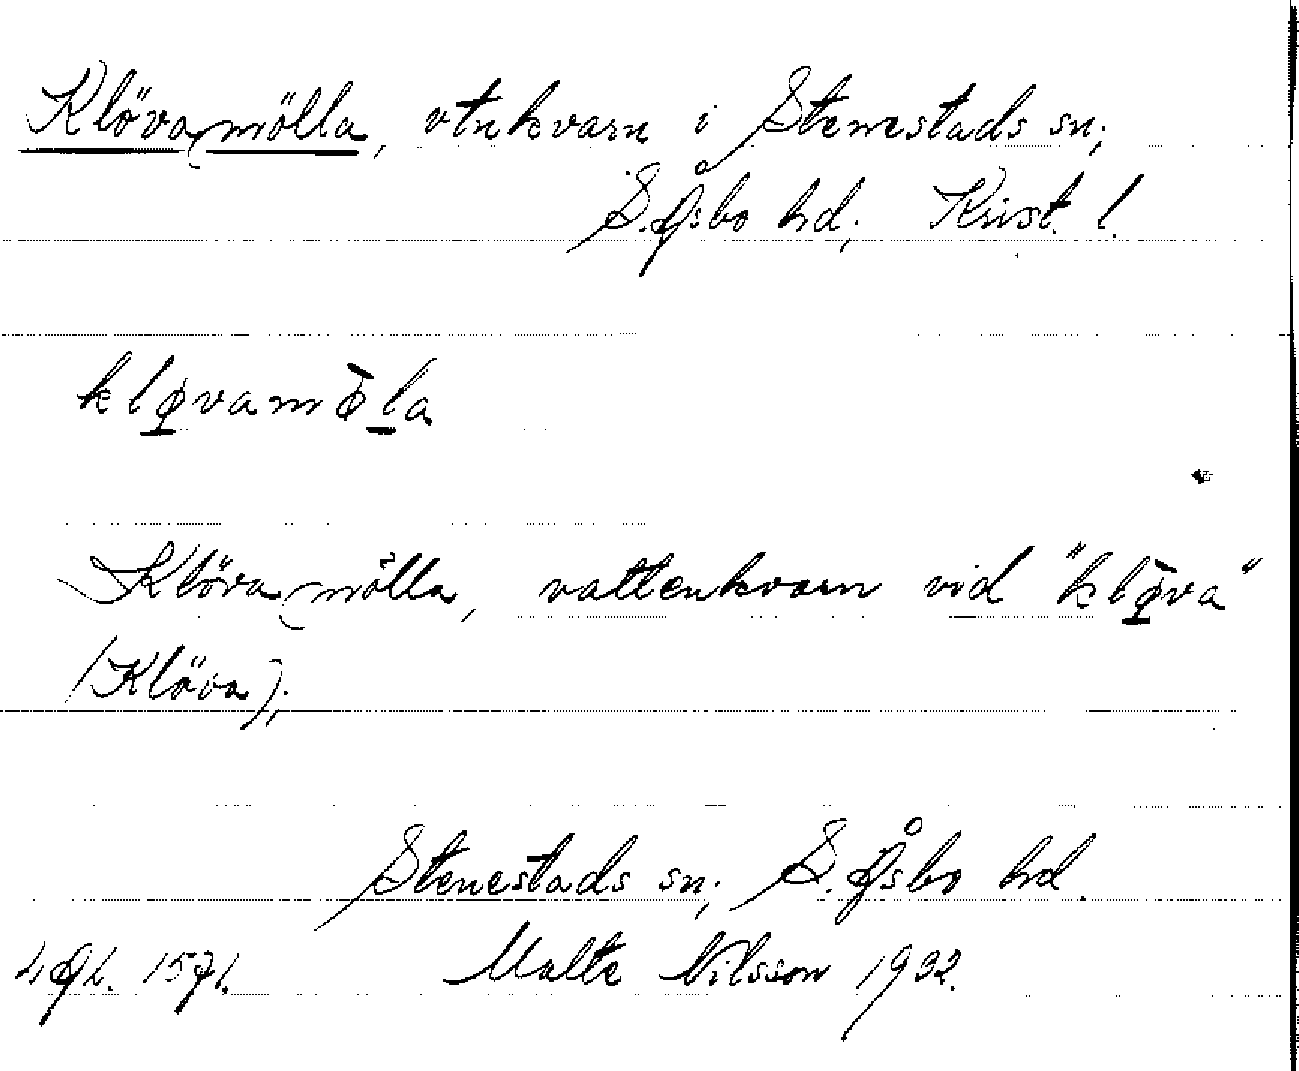 Klövamölla, vtnkvarn i Stenestads sn;
S. Åsbo hd; Krist. l.
kløvamø̄la
Klövamölla, vattenkvarn vid "klø̄va"
(Klöva);
Stenestads sn; S. Åsbo hd.
Malte Nilsson 1932.